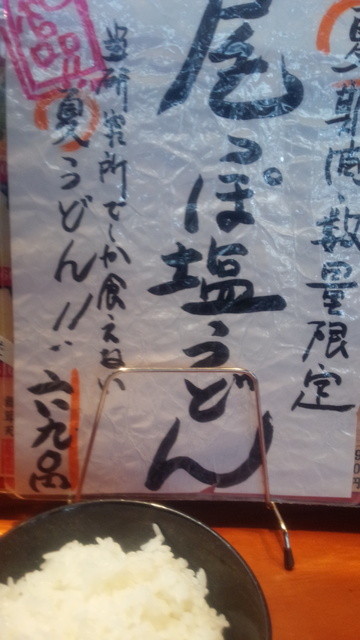 夏期間・数量限定
尾っぽ塩うどん
当研究所でしか食えない
夏うどん!!
六八九円